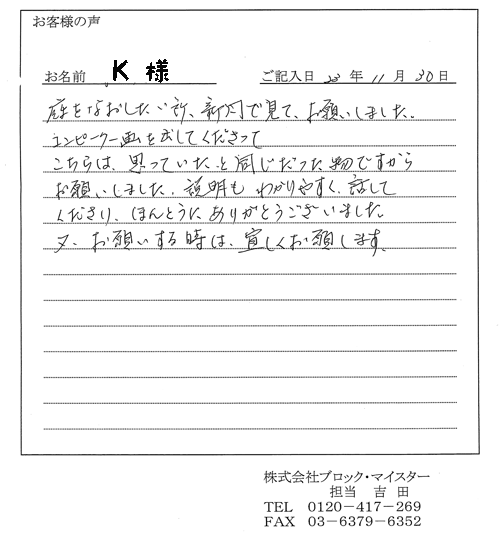 お客様の声
お名前 K 様 ご記入日 23 年 11 月 30 日
庭をなおしたい所、新聞で見て、お願いしました。
コンピーター画を出してくださって
こちらは、思っていたと同じだった物ですから
お願いしました。説明も わかりやすく、話して
くださり、ほんとうに ありがとうございました
又、お願いする時は、宜しくお願します。
株式会社ブロック・マイスター
担当 吉田
TEL 0120-417-269
FAX 03-6379-6352